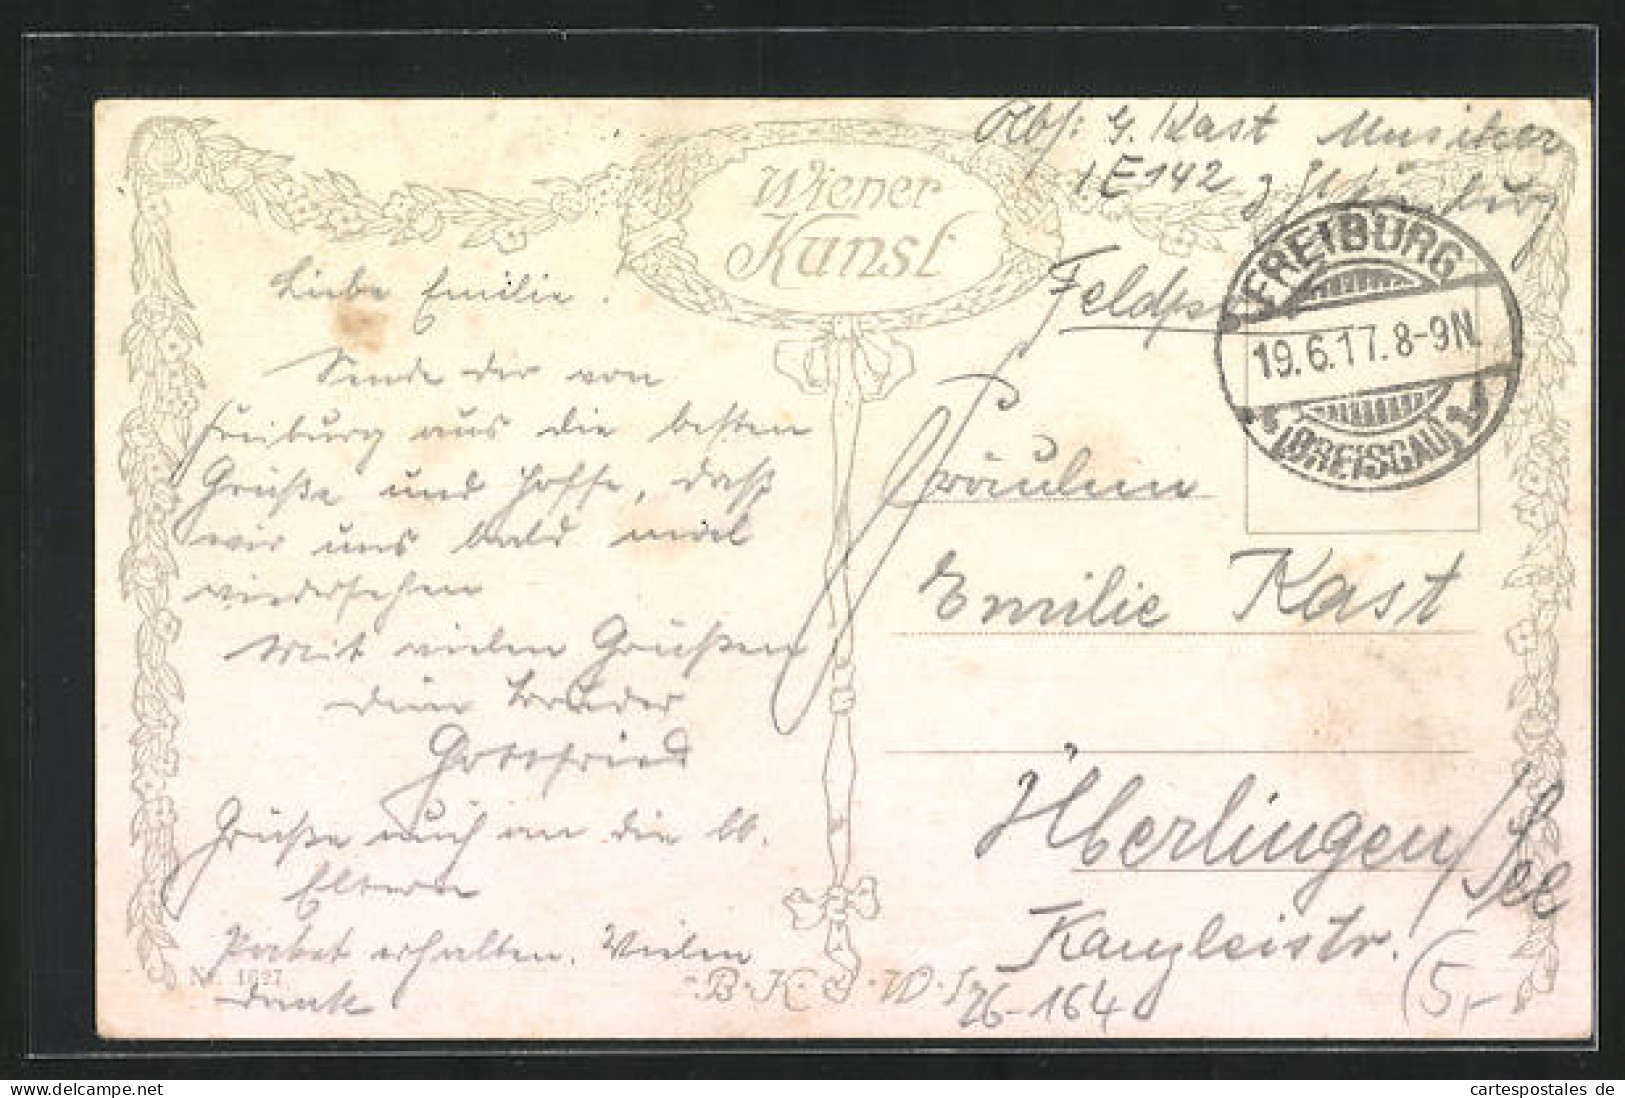 Wiener
Kunst
Abs: G. Kast Musiker
I. E 142 z. Zt.
FREIBURG
19.6.17.8-9N.
(BREISGAU)
Feldp
Liebe Emilie.
Sende dir von
Freiburg aus die besten
Grüße und hoffe, daß
wir uns bald mal
wiedersehen
Mit vielen Grüßen
dein Bruder
Gottfried
Grüße auch an die lb.
Eltern
Paket erhalten. Vielen
Dank
Fräulein
Emilie Kast
Überlingen/See
Kanzleistr.
No. 1627
B.K.W.I.
26-164
(5,-
cartespostales de